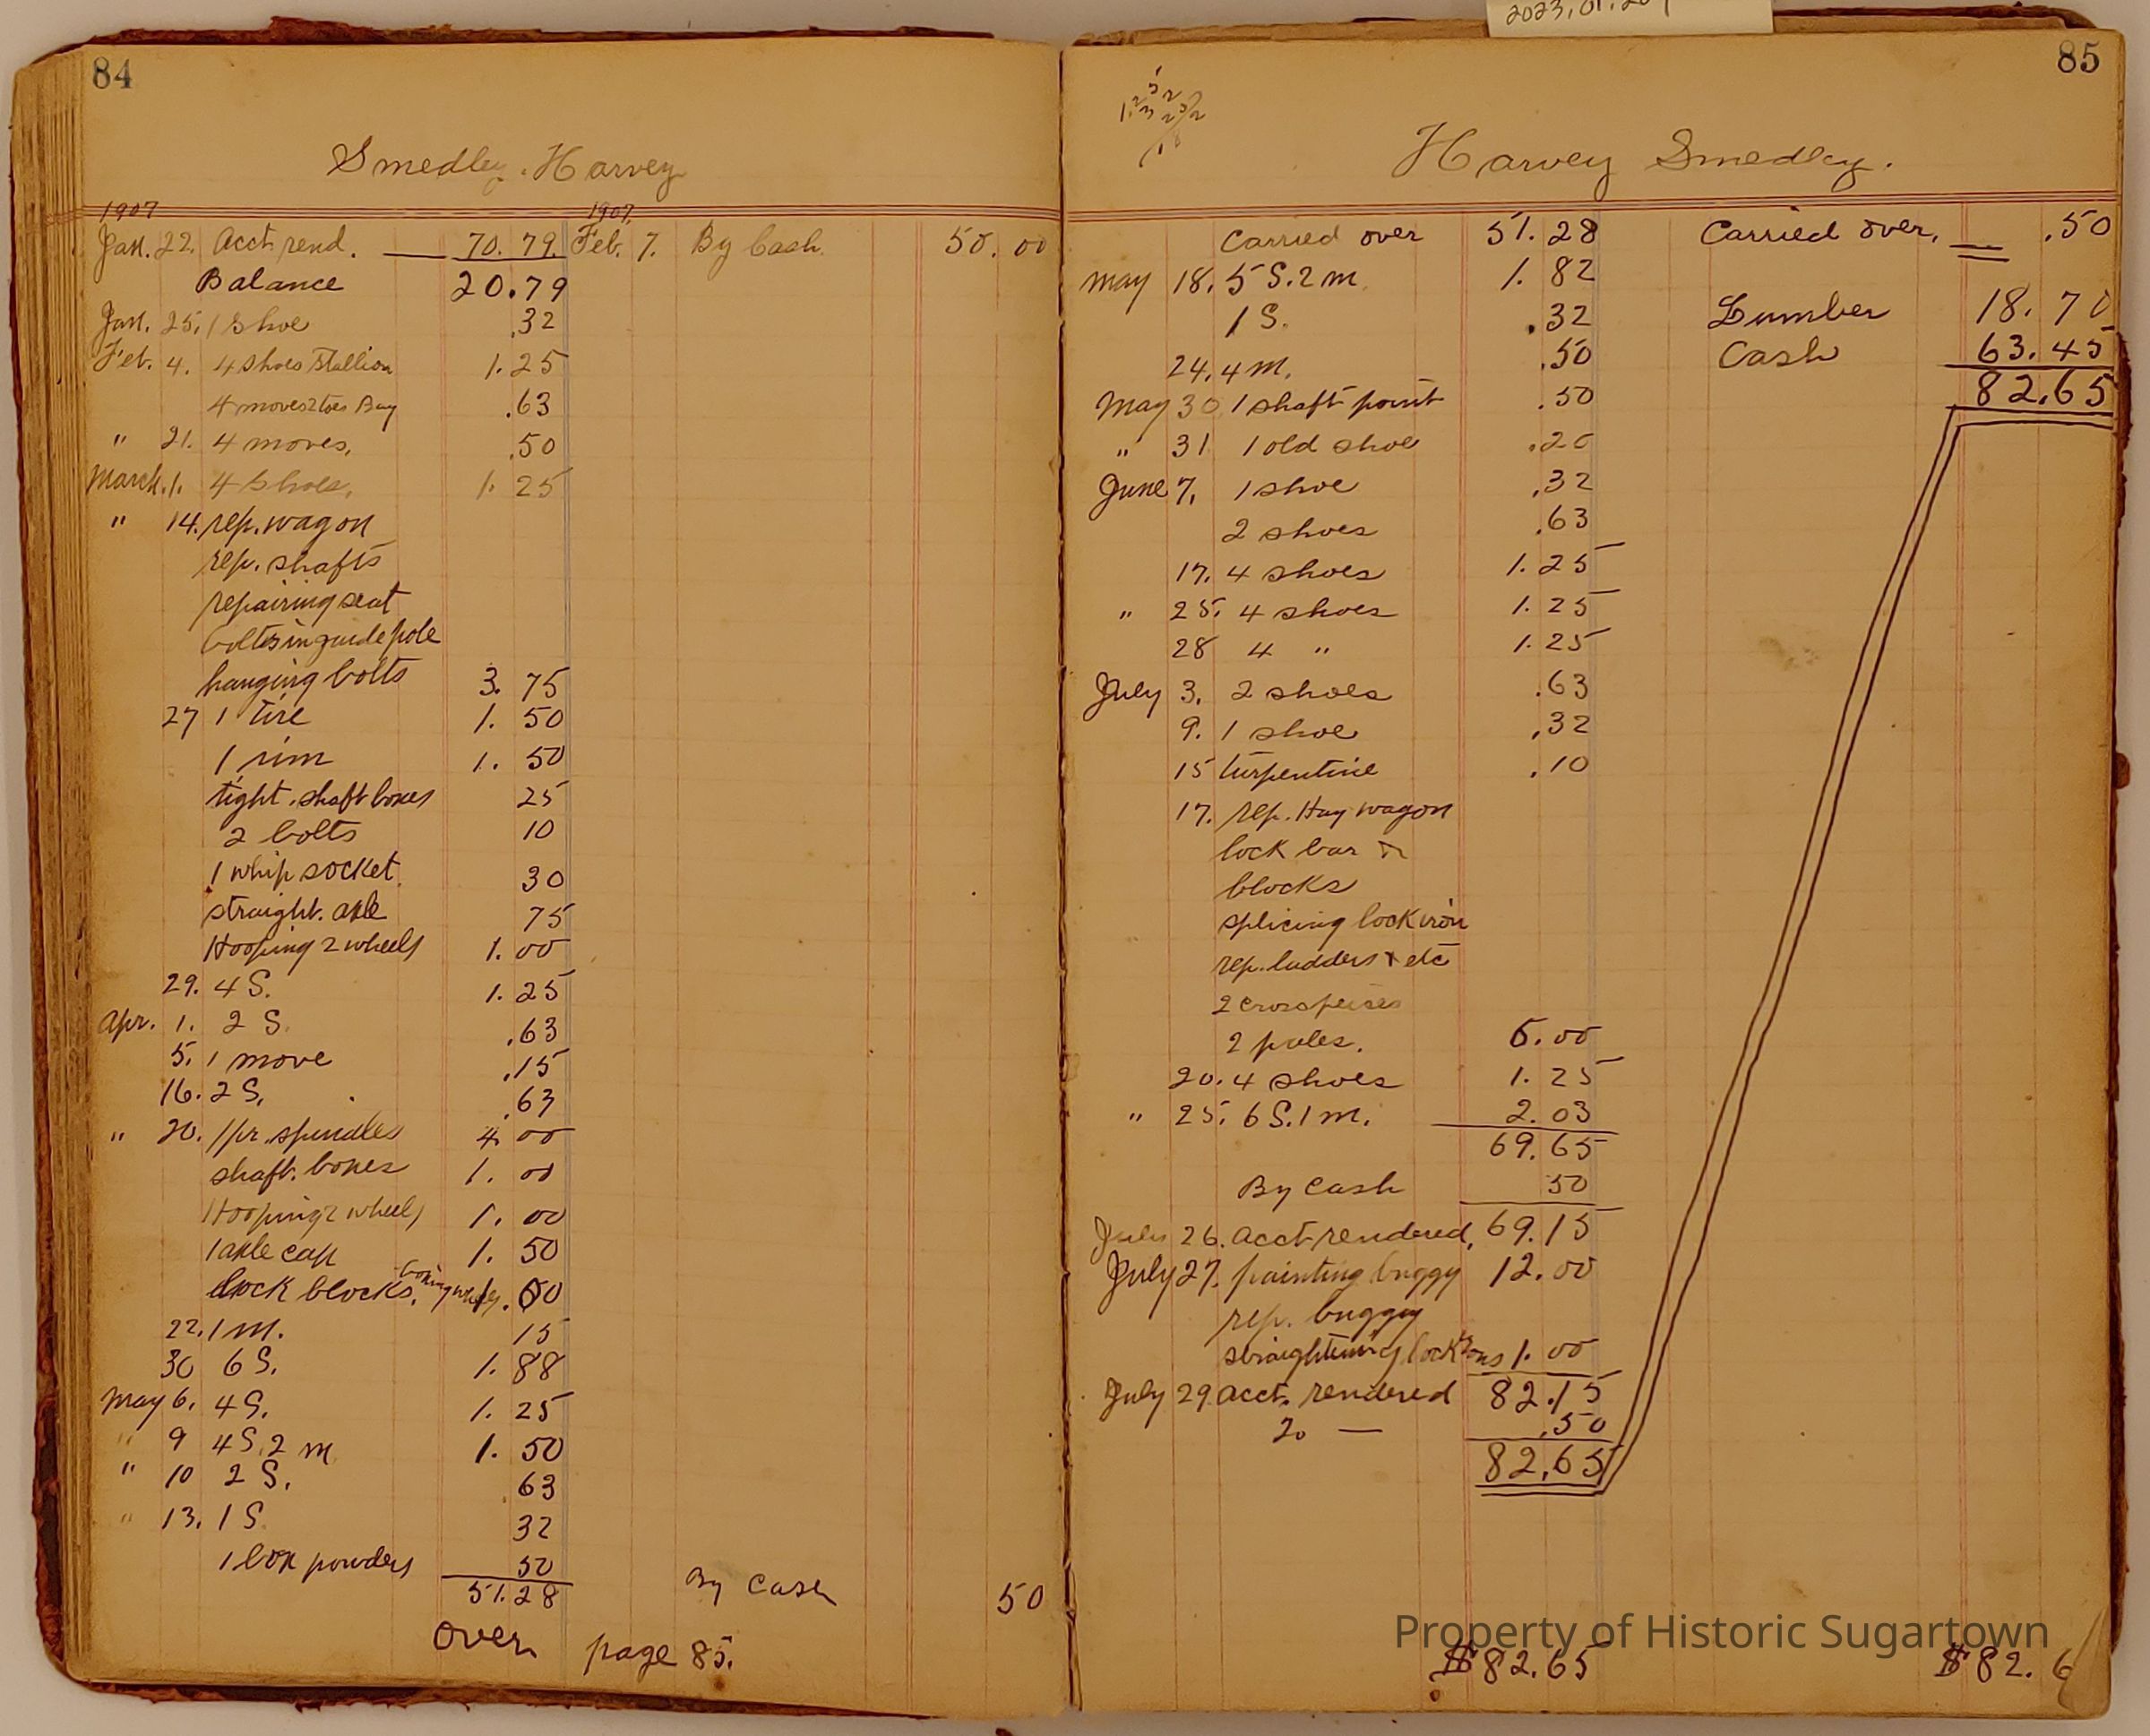 2023.01.201
84
Smedley. Harvey
1907 1907
Jan. 22. Acct. rend. 70. 79. Feb. 7. By Cash. 50. 00
Balance 20.79
Jan. 25. 1 Shoe .32
Feb. 4. 4 shoes Stallion 1.25
4 moves 2 toes Bay .63
" 21. 4 moves, .50
March. 1. 4 Shoes, 1. 25
" 14. rep. wagon
rep. shafts
repairing seat
bolts in guide pole
hanging bolts 3. 75
27 1 tire 1. 50
1 rim 1. 50
tight. shaft boxes 25
2 bolts 10
1 whip socket. 30
straight. axle 75
Hooping 2 wheels 1. 00
29. 4 S. 1. 25
Apr. 1. 2 S. .63
5. 1 move .15
16. 2 S. .63
" 20. 1 pr. spindles 4. 00
shaft. boxes 1. 00
Hooping 2 wheels 1. 00
1 axle cap 1. 50
lock blocks. .00
22. 1 m. 15
30 6 S. 1. 88
May 6. 4 S. 1. 25
" 9 4 S. 2 m 1. 50
" 10 2 S. .63
" 13. 1 S. 32
1 box powders 50
51.28 By Cash 50
Over page 85.
85
Harvey Smedley.
Carried over 51. 28 Carried over, .50
May 18. 5 S. 2 m. 1. 82
1 S. .32 Lumber 18. 70
24. 4 m. .50 Cash 63. 45
May 30 1 shaft point .50 82.65
" 31 1 old shoe .20
June 7. 1 shoe .32
2 shoes .63
17. 4 shoes 1. 25
" 25. 4 shoes 1. 25
28 4 " 1. 25
July 3. 2 shoes .63
9. 1 shoe .32
15 turpentine .10
17. rep. Hay wagon
lock bar &
blocks
splicing lock iron
rep. ladders & etc
2 crosspeises
2 poles. 5. 00
20. 4 shoes 1. 25
" 25. 6 S. 1 m. 2. 03
69. 65
By Cash 50
July 26. Acct rendered, 69. 15
July 27. painting buggy 12. 00
rep. buggy
straightening lock irons 1. 00
July 29 Acct. rendered 82.15
.50
82.65
Property of Historic Sugartown
$82.65 $82. 6